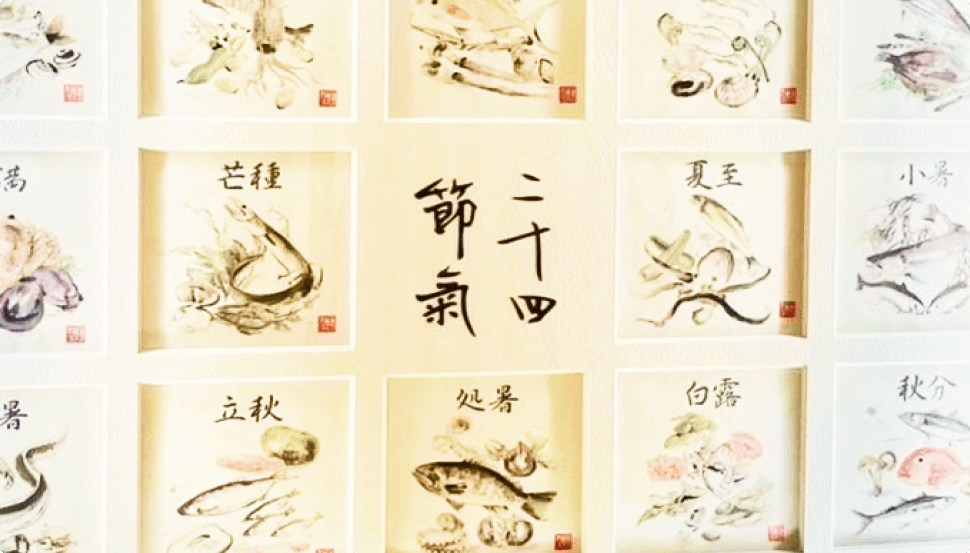 芒種
二十四
節氣
夏至
小暑
立秋
処暑
白露
秋分